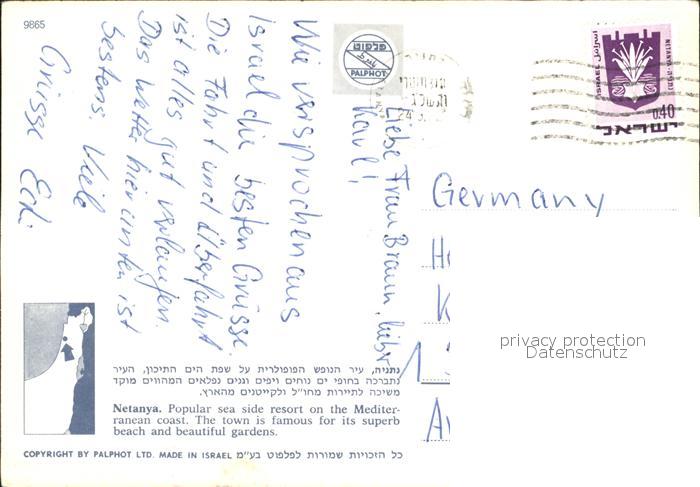 9865
פלפוט
PALPHOT
ISRAEL
اسرائيل
NETANYA - נתניה
0.40
ישראל
Liebe Frau Braun, lieber
Karl!
Wie versprochen aus
Israel die besten Grüsse.
Die Fahrt und Überfahrt
ist alles gut verlaufen.
Das Wetter hier unten ist
bestens. Viele
Grüsse Edi
Germany
privacy protection
Datenschutz
נתניה, עיר הנופש הפופולרית על שפת הים התיכון, העיר
נתברכה בחופי ים נוחים ויפים וגנים נפלאים המהווים מוקד
משיכה לתיירות מחו"ל ולקייטנים מהארץ.
Netanya. Popular sea side resort on the Mediter-
ranean coast. The town is famous for its superb
beach and beautiful gardens.
COPYRIGHT BY PALPHOT LTD. MADE IN ISRAEL כל הזכויות שמורות לפלפוט בע"מ